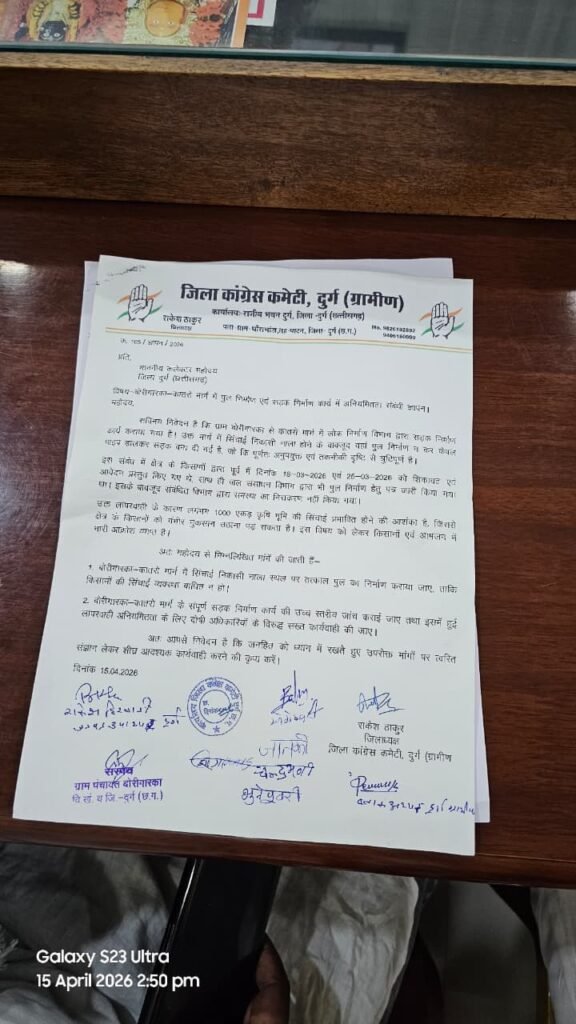 जिला कांग्रेस कमेटी, दुर्ग (ग्रामीण)
कार्यालय- राजीव भवन दुर्ग, जिला -दुर्ग (छत्तीसगढ़)
राकेश ठाकुर
जिलाध्यक्ष
जिला- दुर्ग (छ.ग.)
क्र. 105 / ज्ञापन / 2026
प्रति,
माननीय कलेक्टर महोदय
जिला दुर्ग (छत्तीसगढ़)
विषय-बोरीगारका-कातरो मार्ग में पुल निर्माण एवं सड़क निर्माण कार्य में अनियमितता संबंधी ज्ञापन।
महोदय,
सविनय निवेदन है कि ग्राम बोरीगारका से कातरो मार्ग में लोक निर्माण विभाग द्वारा सड़क निर्माण
कार्य कराया गया है। उक्त मार्ग में सिंचाई निकासी नाला होने के बावजूद वहां पुल निर्माण न कर केवल
पाइप डालकर सड़क बना दी गई है, जो कि पूर्णतः अनुपयुक्त एवं तकनीकी दृष्टि से त्रुटिपूर्ण है।
इस संबंध में क्षेत्र के किसानों द्वारा पूर्व में दिनांक 18-03-2026 एवं 25-03-2026 को शिकायत एवं
आवेदन प्रस्तुत किए गए थे, साथ ही जल संसाधन विभाग द्वारा भी पुल निर्माण हेतु पत्र जारी किया गया
था। इसके बावजूद संबंधित विभाग द्वारा समस्या का निराकरण नहीं किया गया।
उक्त लापरवाही के कारण लगभग 1000 एकड़ कृषि भूमि की सिंचाई प्रभावित होने की आशंका है, जिससे
क्षेत्र के किसानों को गंभीर नुकसान उठाना पड़ सकता है। इस विषय को लेकर किसानों एवं आमजन में
भारी आक्रोश व्याप्त है।
अतः महोदय से निम्नलिखित मांगें की जाती हैं-
1. बोरीगारका-कातरो मार्ग में सिंचाई निकासी नाला स्थल पर तत्काल पुल का निर्माण कराया जाए, ताकि
किसानों की सिंचाई व्यवस्था बाधित न हो।
2. बोरीगारका-कातरो मार्ग के संपूर्ण सड़क निर्माण कार्य की उच्च स्तरीय जांच कराई जाए तथा इसमें हुई
लापरवाही अनियमितता के लिए दोषी अधिकारियों के विरुद्ध सख्त कार्यवाही की जाए।
अतः आपसे निवेदन है कि जनहित को ध्यान में रखते हुए उपरोक्त मांगों पर त्वरित
संज्ञान लेकर शीघ्र आवश्यक कार्यवाही करने की कृपा करें।
दिनांक 15.04.2026
राकेश ठाकुर
जिलाध्यक्ष
जिला कांग्रेस कमेटी, दुर्ग (ग्रामीण
जानकी
सरपंच
ग्राम पंचायत बोरीगारका
वि.खं. व जि.-दुर्ग (छ.ग.)
Galaxy S23 Ultra
15 April 2026 2:50 pm